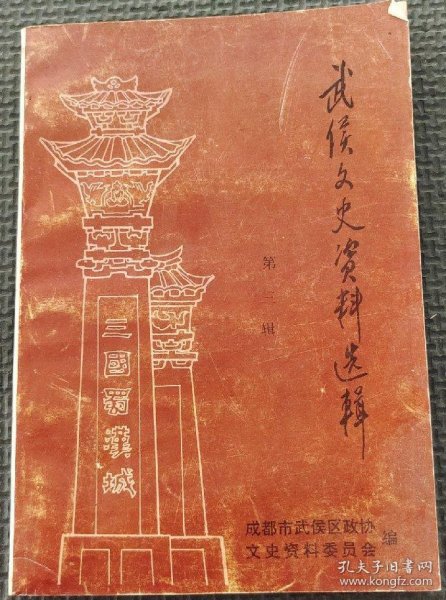 武侯文史资料选辑
第三辑
三國蜀漢城
成都市武侯区政协
文史资料委员会
编
孔夫子旧书网
www.kongfz.com